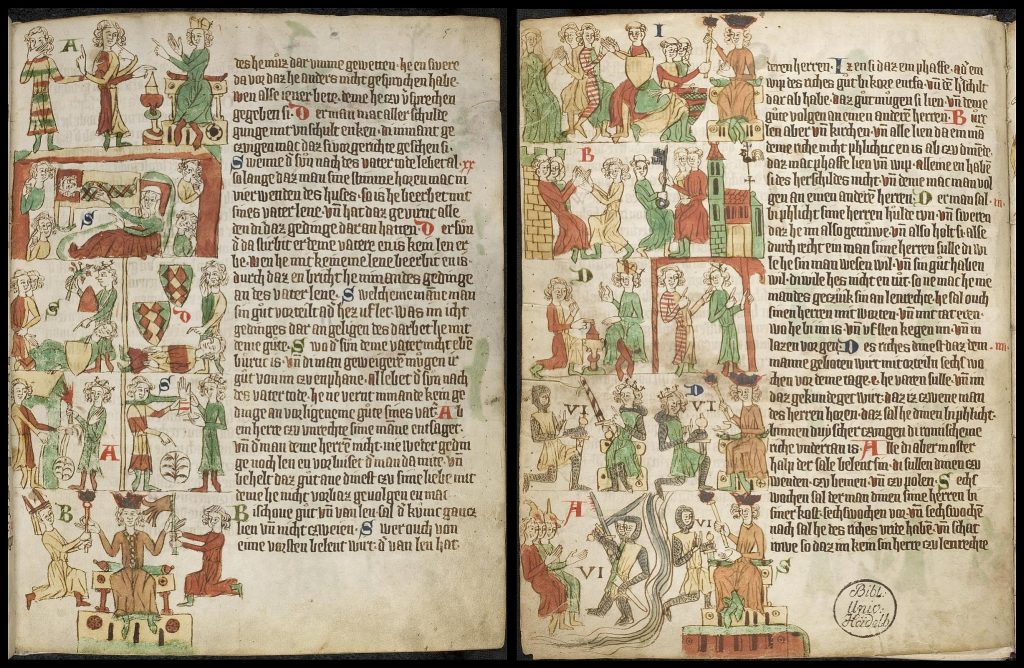 des he mus dar vmme gewetten · he en swere
da vor daz he anders nicht gesprochen habe ·
wen alse iener bete · deme he czu vͦsprechen
gegeben si · Der man mac aller schulde
gunge mit vnschult enken · di im nant ge
czvigen mac daz si vor gerichte geschen si ·
Swenne dͦ svn nach des vater tode lebet al
so lange daz man sine stimme horen mac in
vier wenden des huses · so is he beerbet mit
sines vater lene · vn hat daz gevirnt alle
den di daz gedinge dar an hatten · Der svn
da stirbit er deme vatere en is kein len er
be · wen he mit keineme lene beerbit en is ·
durch daz en bricht he nimandes gedinge
an des vater lene · Swelcheme manne man
sin gut vorteilt ad hez vflet · was im icht
gedinges dar an geligen des darbet he mit
deme gute · Swo dͦ svn deme vater nicht ebē
burtic is · vn di man geweigeren mugen ir
gut von im czv enphane · al lebet dͦ svn nach
des vater tode · he ne vernt nimande kein ge
dinge an vorligeneme gute sines vat · Ab
ein herre czv vnrechte sime manne entsaget ·
vn dͦ man deme herrē nicht · nie weder gedin
ge noch len en vorluset dͦ man da mite · vn
behelt daz gut ane dinest czv sime liebe mit
deme he nicht vorbaz gevolgen en mac
Bischoue gut vn van len sal dͦ kvnic gancz
lien vn nicht czweien · Swer ouch von
eime vorsten belent wirt · dͦ van len hat
A
S
D
S
A
B
xx
5
deren herren · Iz en si daz ein phaffe · adͦ ein
wip des riches gut bi kore entfa · vn dē hschilt
dar ab habe · daz gut mugen si lien · vn deme
gute volgen an einen anderē herren · Burc
len aber vn kirchen · vn alle len da ein mā
deme riche nicht phlichtic en is ab czv dinēde
daz mac phaffe lien vn wip · alleine en habē
si des herschildes nicht · vn deme mac man vol
gen an einen anderē herren · Der man sal
bi phlicht sime herren hulde tvn · vn sweren
daz he im also getruwe · vn also holt si · alse
durch recht ein man sime herren sulle di wi
le he sin man wesen wil · vn sin gut haben
wil · di wile hes nicht en tut · so ne mac he ni
mandes geczuk sin an lenrechte · he sal ouch
sinen herren mit worten · vn mit tat eren
wo he bi im is · vn vf sten kegen im · vn in
lazen vorgen · Des riches dinest · daz dem
manne geboten wirt mit orteiln sechs wo
chen vor deme tage · e he varen sulle · vn im
daz gekundeget wirt · daz iz czwene man
des herren horen · daz sal he dinen bi phlicht ·
binnen duyscher czvngen di romischeme
riche vndertan is · Alle di aber in oster
halp der sale belent sin · di sullen dinen czv
wenden · czv bemen · vn czv polen · Sechs
wochen sal der man dinen sime herren bi
siner kost · sechs wochen vor · vn sechs wochē
nach sal he des riches vride habē · vn schat
rowe so daz im kein sin herre czv lenrechte
I
B
D
D
A
S
VI
VI
VI
VI
Bibl:
Univ:
Heidelb.